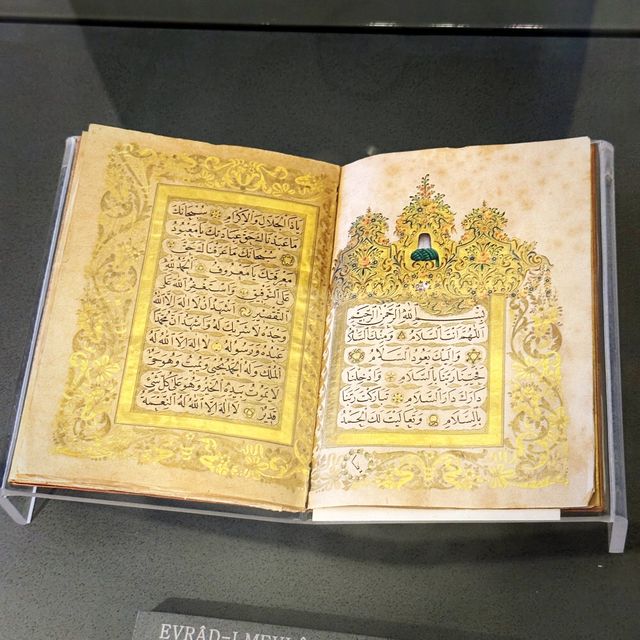 بسم الله الرحمن الرحيم
اللهم انت السلام ومنك السلام
واليك يعود السلام
فحينا ربنا بالسلام وادخلنا
دارك دار السلام تباركت ربنا
بالسلام وتعاليت لك الحمد
ياذا الجلال والاكرام سبحانك
ما عبدناك حق عبادتك يا معبود
سبحانك ما عرفناك حق
معرفتك يا معروف الحمد لله
على التوفيق واستغفر الله على
التقصير اشهد ان لا اله الا الله
وحده لا شريك له واشهد ان محمدا
عبده ورسوله لا اله الا الله له
الملك وله الحمد يحيي ويميت وهو حي
لا يموت بيده الخير وهو على كل شئ
قدير لا اله الا الله له النعمة
EVRÂD-I